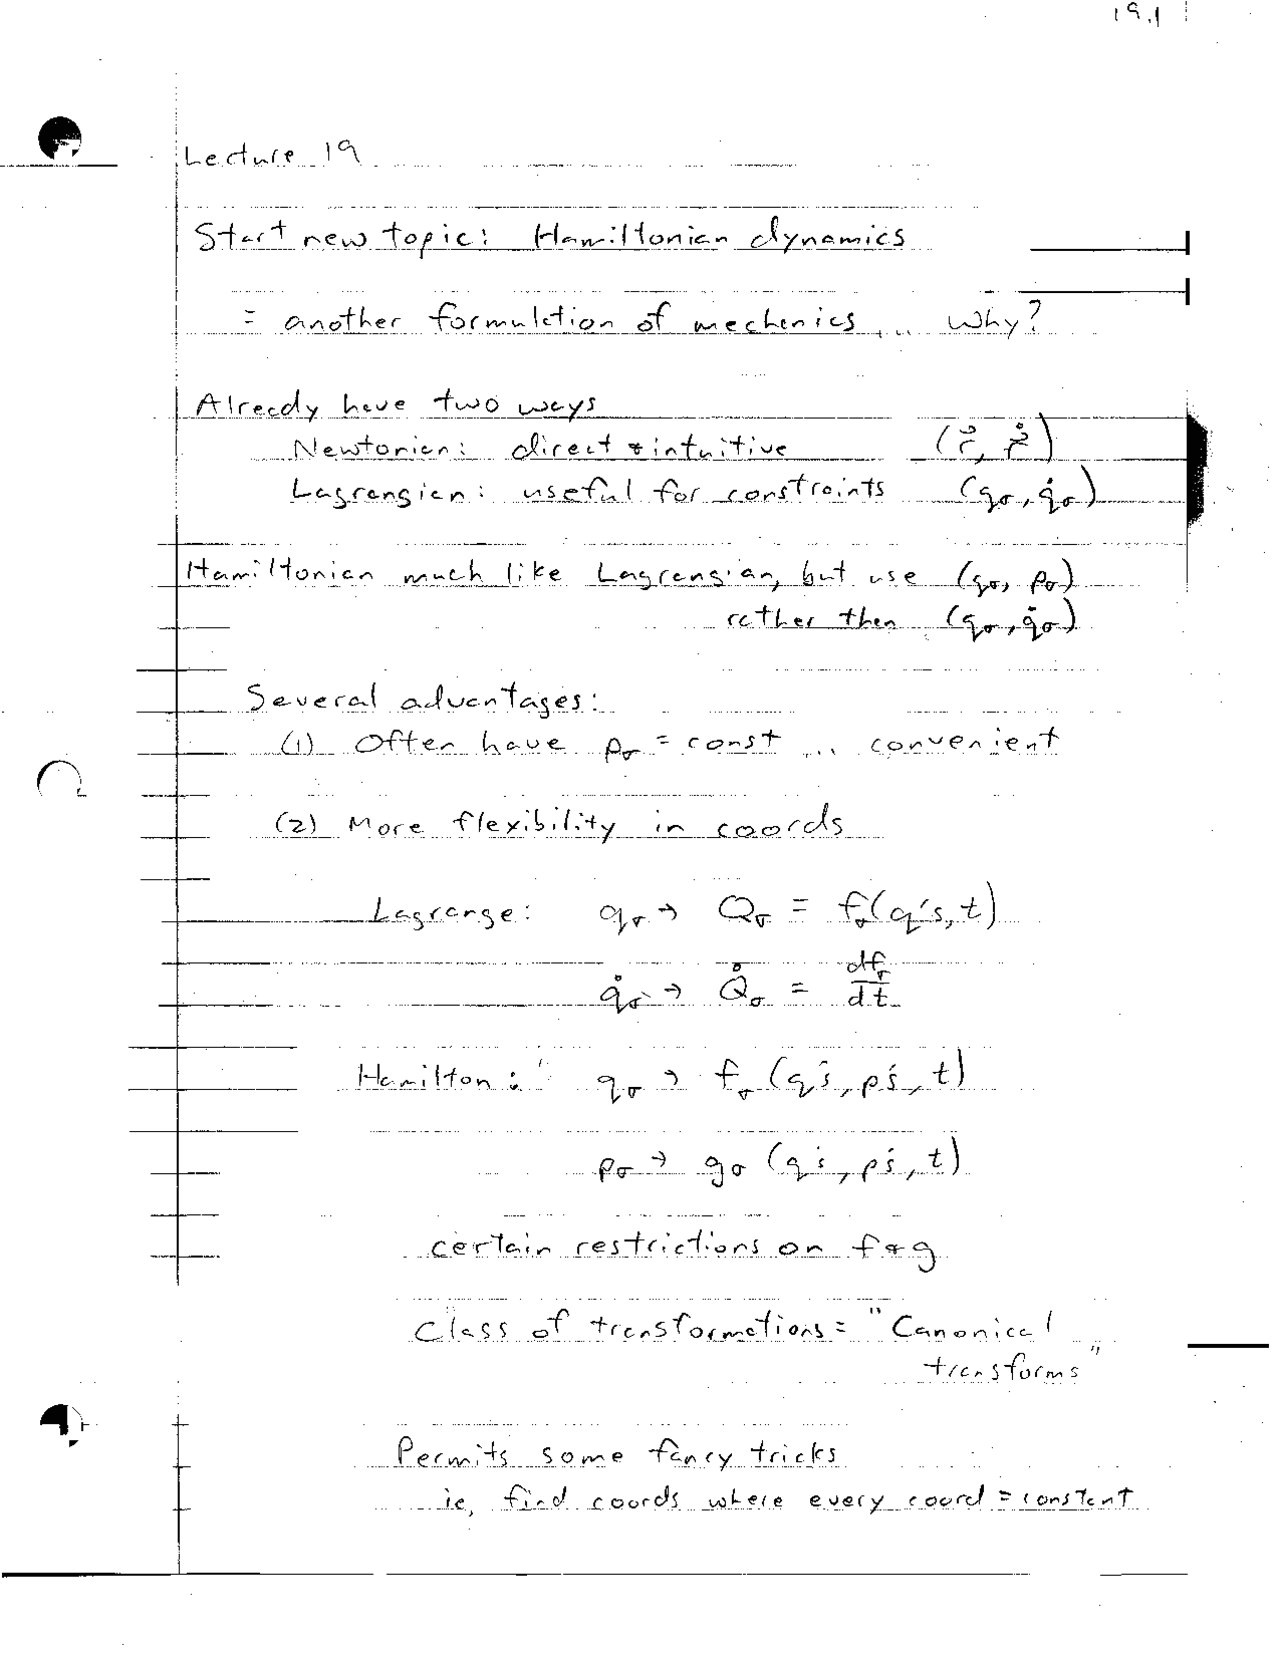 19.1
Lecture 19
Start new topic: Hamiltonian dynamics
= another formulation of mechanics ... Why?
Already have two ways
Newtonian: direct & intuitive (r⃗, ṙ⃗)
Lagrangian: useful for constraints (qσ, q̇σ)
Hamiltonian much like Lagrangian, but use (qσ, pσ)
rather than (qσ, q̇σ)
Several advantages:
(1) Often have pσ = const ... convenient
(2) More flexibility in coords
Lagrange: qσ → Qσ = fσ(q's, t)
q̇σ → Q̇σ = dfσ/dt
Hamilton: qσ → fσ(q's, p's, t)
pσ → gσ(q's, p's, t)
certain restrictions on f & g
Class of transformations = "Canonical
transforms"
Permits some fancy tricks
ie, find coords where every coord = constant